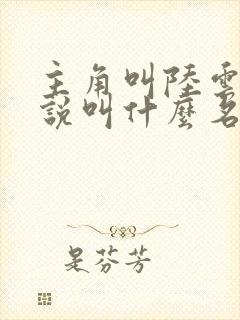 主角叫陸雲
說叫什麼名
是芬芳